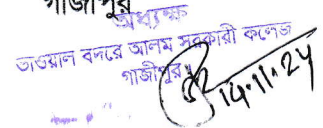 গাজীপুর
অধ্যক্ষ
ভাওয়াল বদরে আলম সরকারী কলেজ
গাজীপুর।
14.11.24